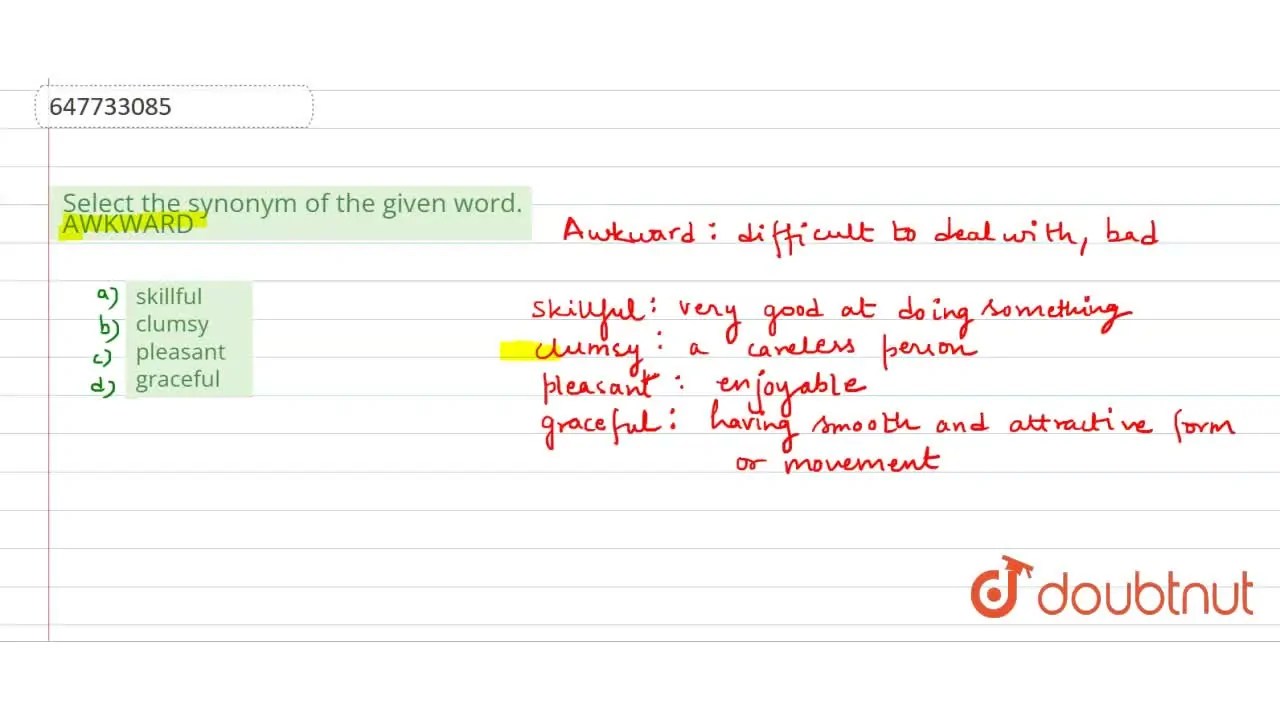 647733085
Select the synonym of the given word.
AWKWARD
Awkward : difficult to deal with, bad
a) skillful
b) clumsy
c) pleasant
d) graceful
skillful : very good at doing something
clumsy : a careless person
pleasant : enjoyable
graceful : having smooth and attractive form
or movement
doubtnut